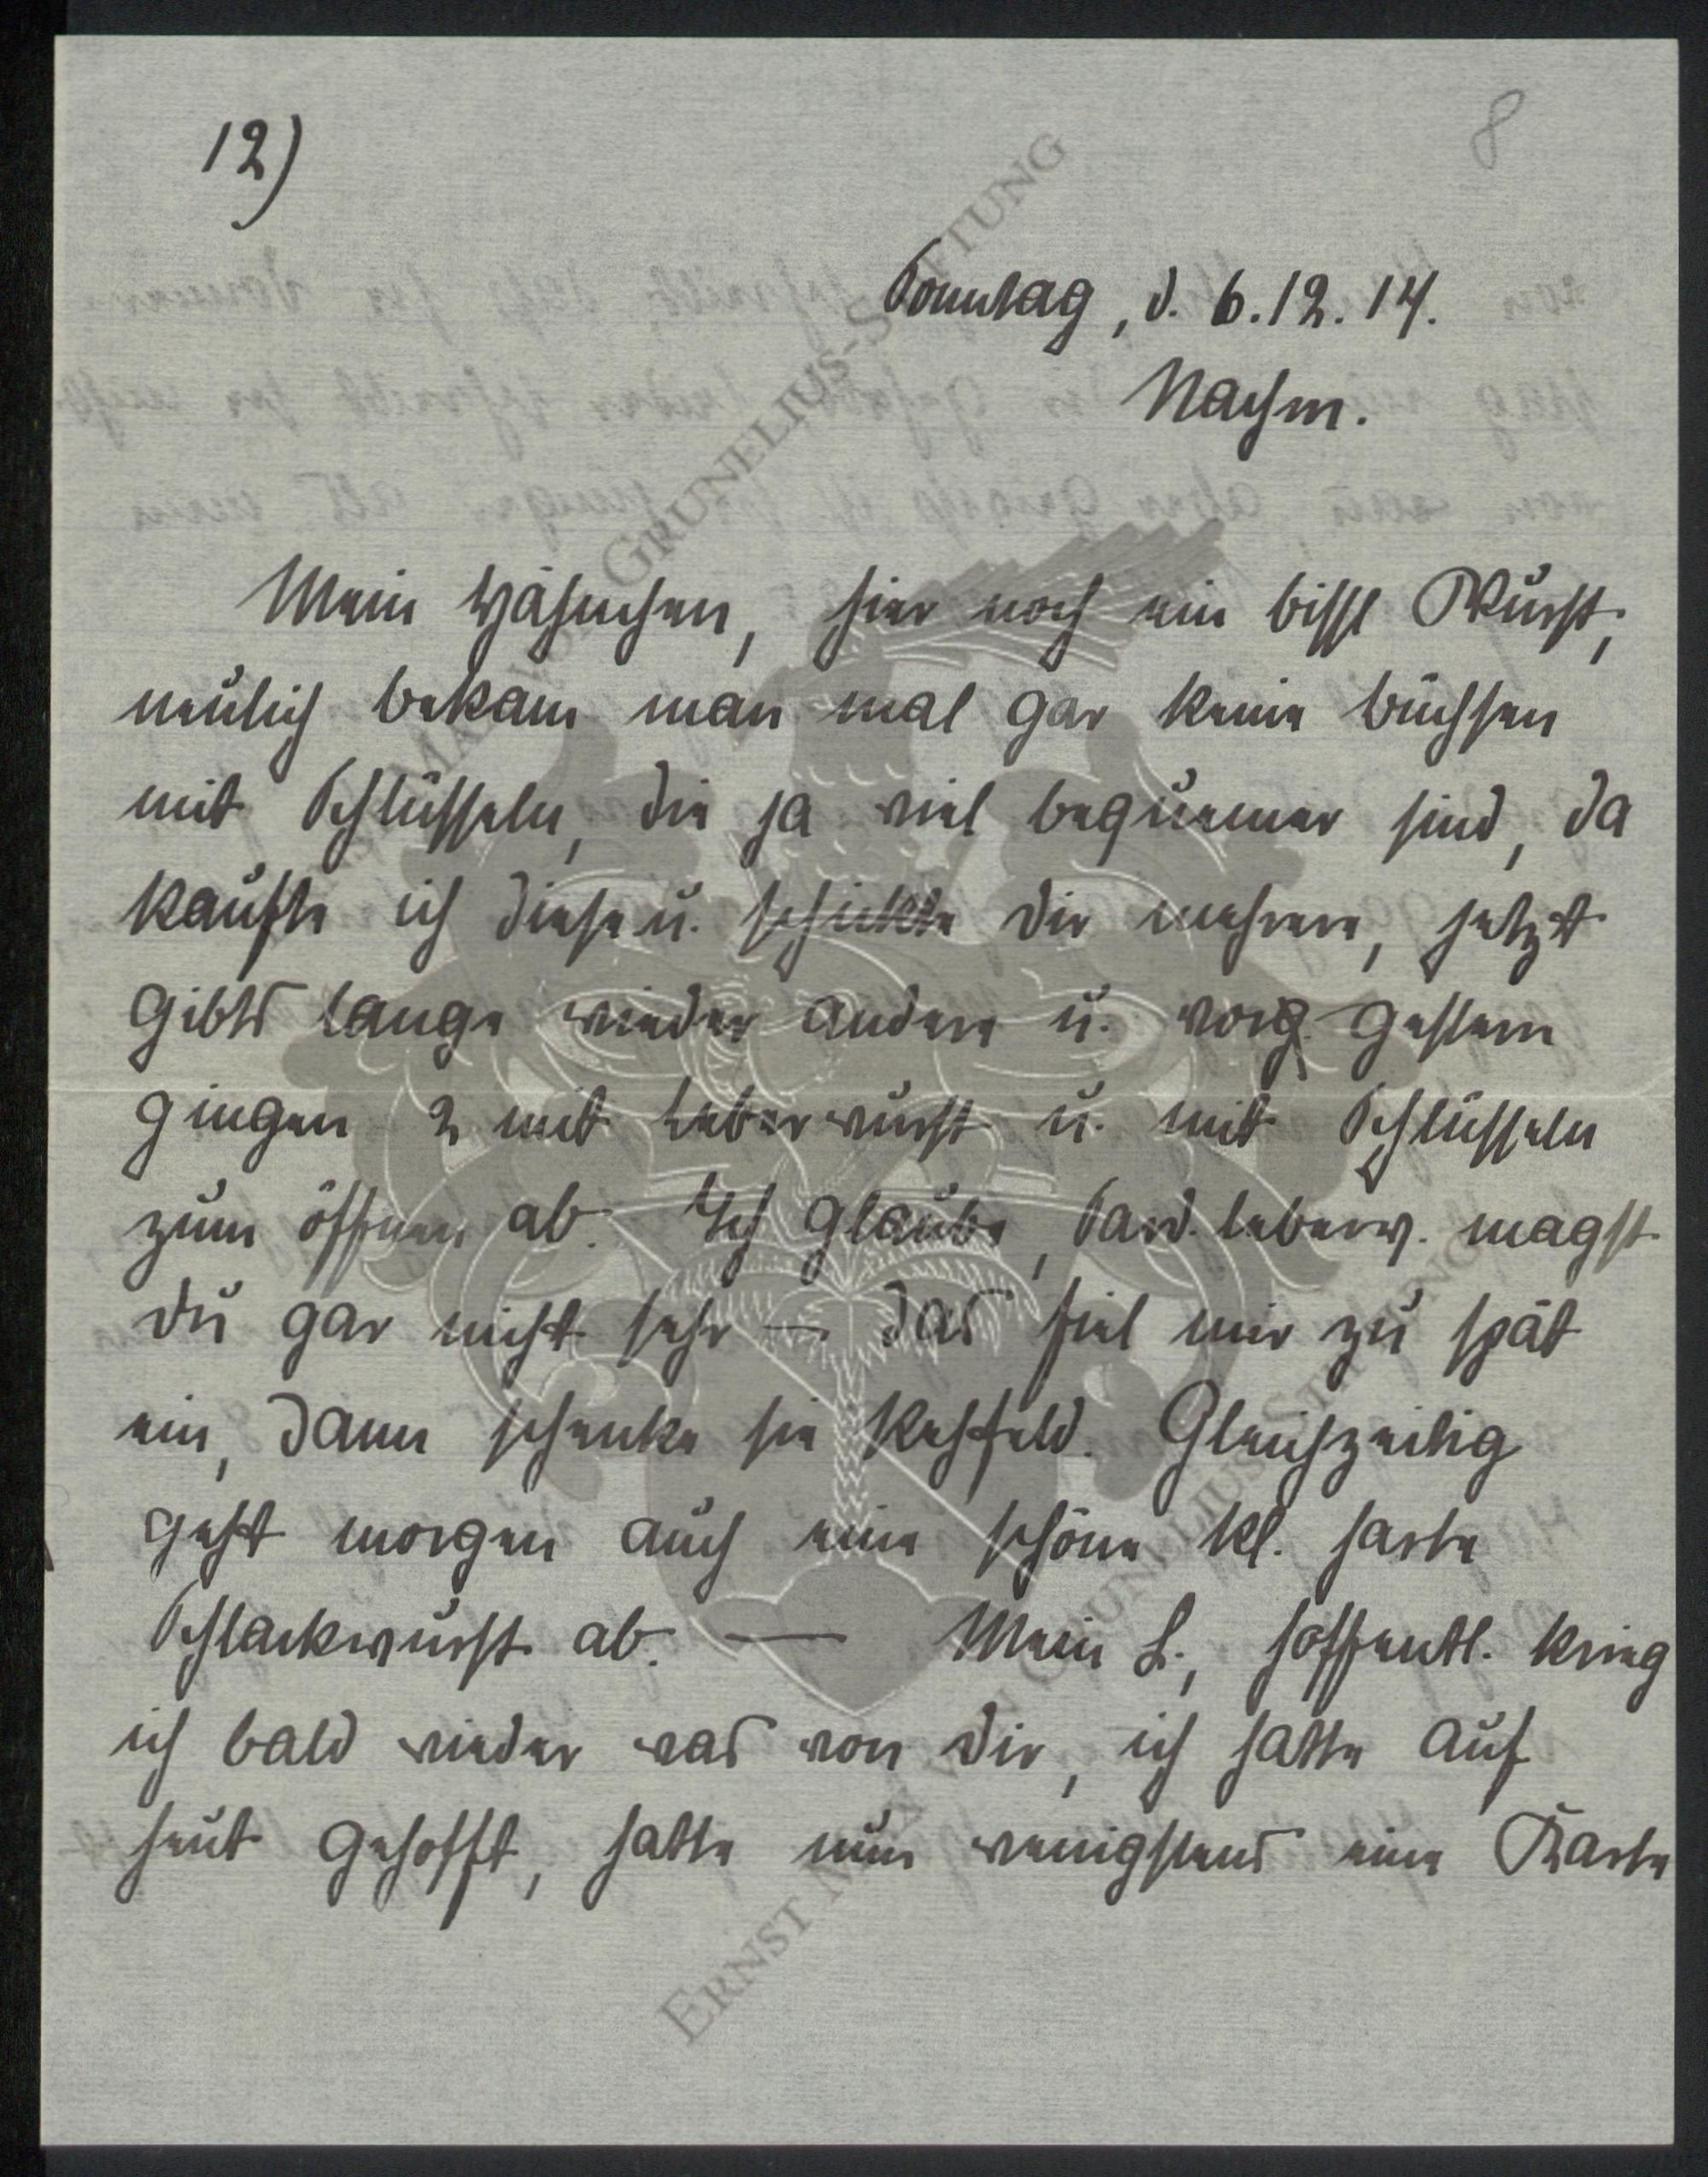 12)
8
Sonntag, d. 6.12.14.
Nachm.
Mein Häschen, hier noch ein bissl Wurst,
neulich bekam man mal gar keine Büchsen
mit Schlüsseln, die ja viel bequemer sind, da
kaufte ich diese u. schickte dir mehrere, jetzt
gibts lange wieder andere u. vorg. gestern
gingen 2 mit Leberwurst u. mit Schlüsseln
zum öffnen ab. Ich glaube, Sard. leberw. magst
du gar nicht sehr – das fiel mir zu spät
ein, dann schenke sie Rehfeld. Gleichzeitig
geht morgen auch eine schöne kl. harte
Schlackwurst ab. — Mein L., hoffentl. krieg
ich bald wieder was von dir, ich hatte auf
heut gehofft, hatte nun wenigstens eine Karte
ERNST MAX VON GRUNELIUS-STIFTUNG
ERNST MAX VON GRUNELIUS-STIFTUNG